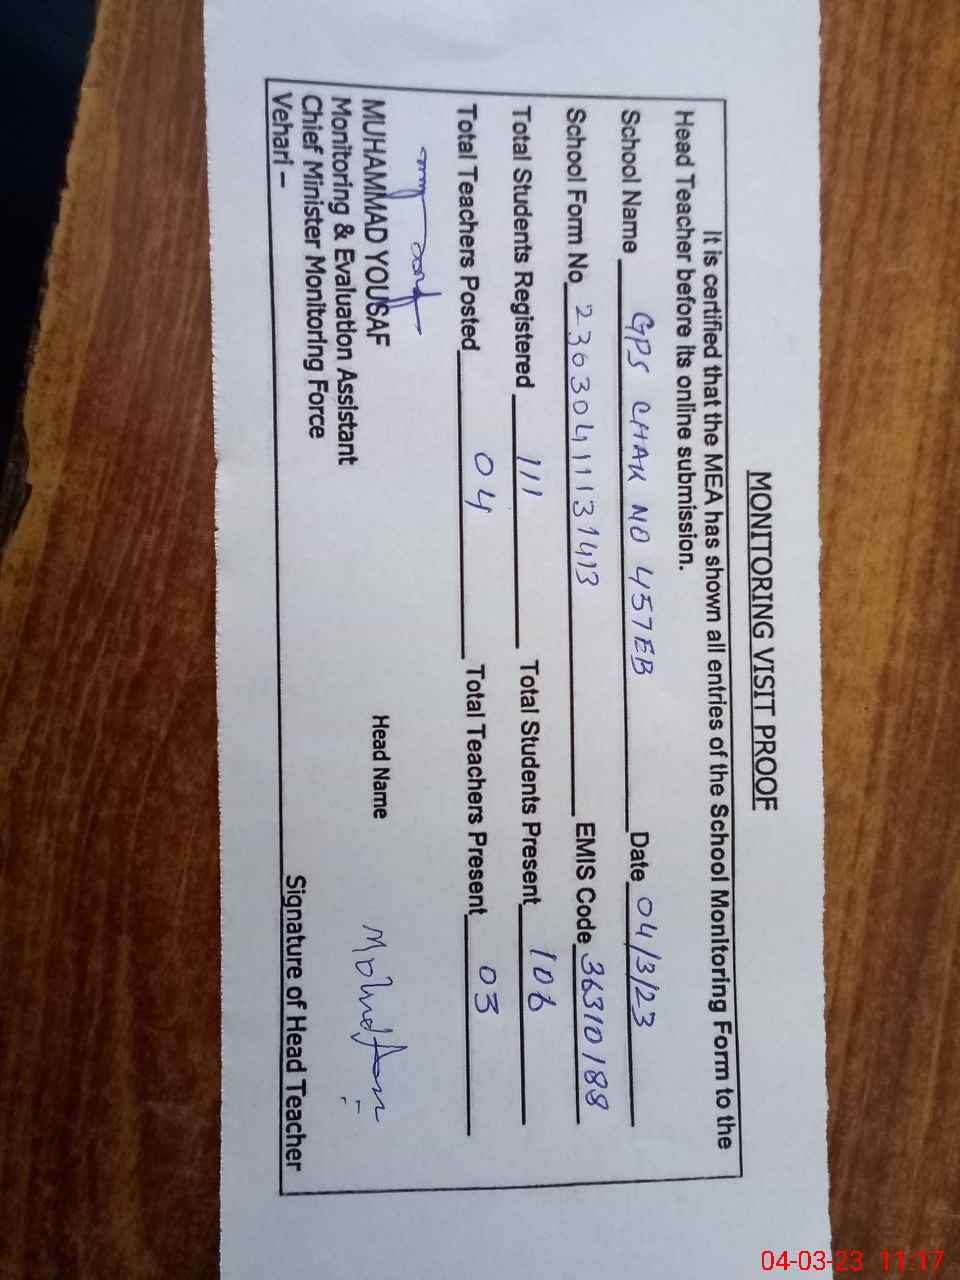 MONITORING VISIT PROOF
It is certified that the MEA has shown all entries of the School Monitoring Form to the
Head Teacher before its online submission.
School Name GPS CHAK NO 457EB Date 04/3/23
School Form No 23030411131413 EMIS Code 36310188
Total Students Registered 111 Total Students Present 106
Total Teachers Posted 04 Total Teachers Present 03
MUHAMMAD YOUSAF
Monitoring & Evaluation Assistant
Chief Minister Monitoring Force
Vehari –
Head Name
Signature of Head Teacher
04-03-23 11:17